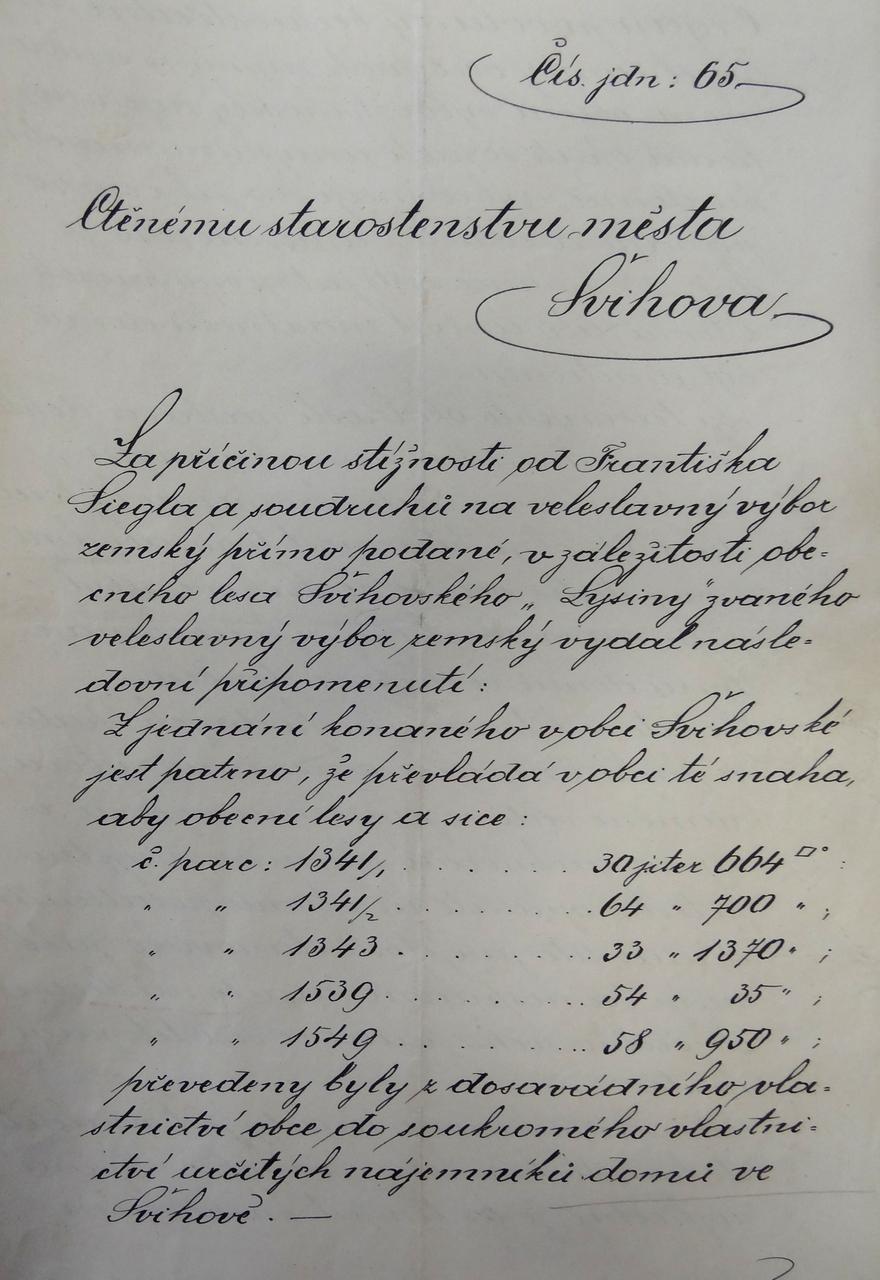 Čís. jdn: 65
Ctěnému starostenstvu města
Švihova
Za příčinou stížnosti od Františka
Siegla a soudruhů na veleslavný výbor
zemský přímo podané, v záležitosti obe=
cního lesa Švihovského „Lysiny" zvaného
veleslavný výbor zemský vydal násle=
dovní připomenutí:
Z jednání konaného v obci Švihovské
jest patrno, že převládá v obci té snaha,
aby obecní lesy a sice:
č. parc: 1341/1 . . . . . 30 jiter 664 □° :
" " 1341/2 . . . . . . 64 " 700 " ;
" " 1343 . . . . . . 33 " 1370 " ;
" " 1539 . . . . . . 54 " 35 " ;
" " 1549 . . . . . . 58 " 950 " ;
převedeny byly z dosavádního vla=
stnictví obce do soukromého vlastni=
ctví určitých nájemníků domů ve
Švihově. —